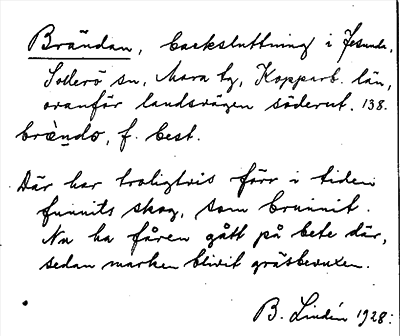 Brändan, backsluttning i Jesunda,
Sollerö sn, Mora tg, Kopparb. län,
ovanför landsvägen söderut. 138.
brèndo, f. best.
Där har troligtvis förr i tiden
funnits skog, som brunnit.
Nu ha fåren gått på bete där,
sedan marken blivit gräsbevuxen.
B. Lindén 1928.